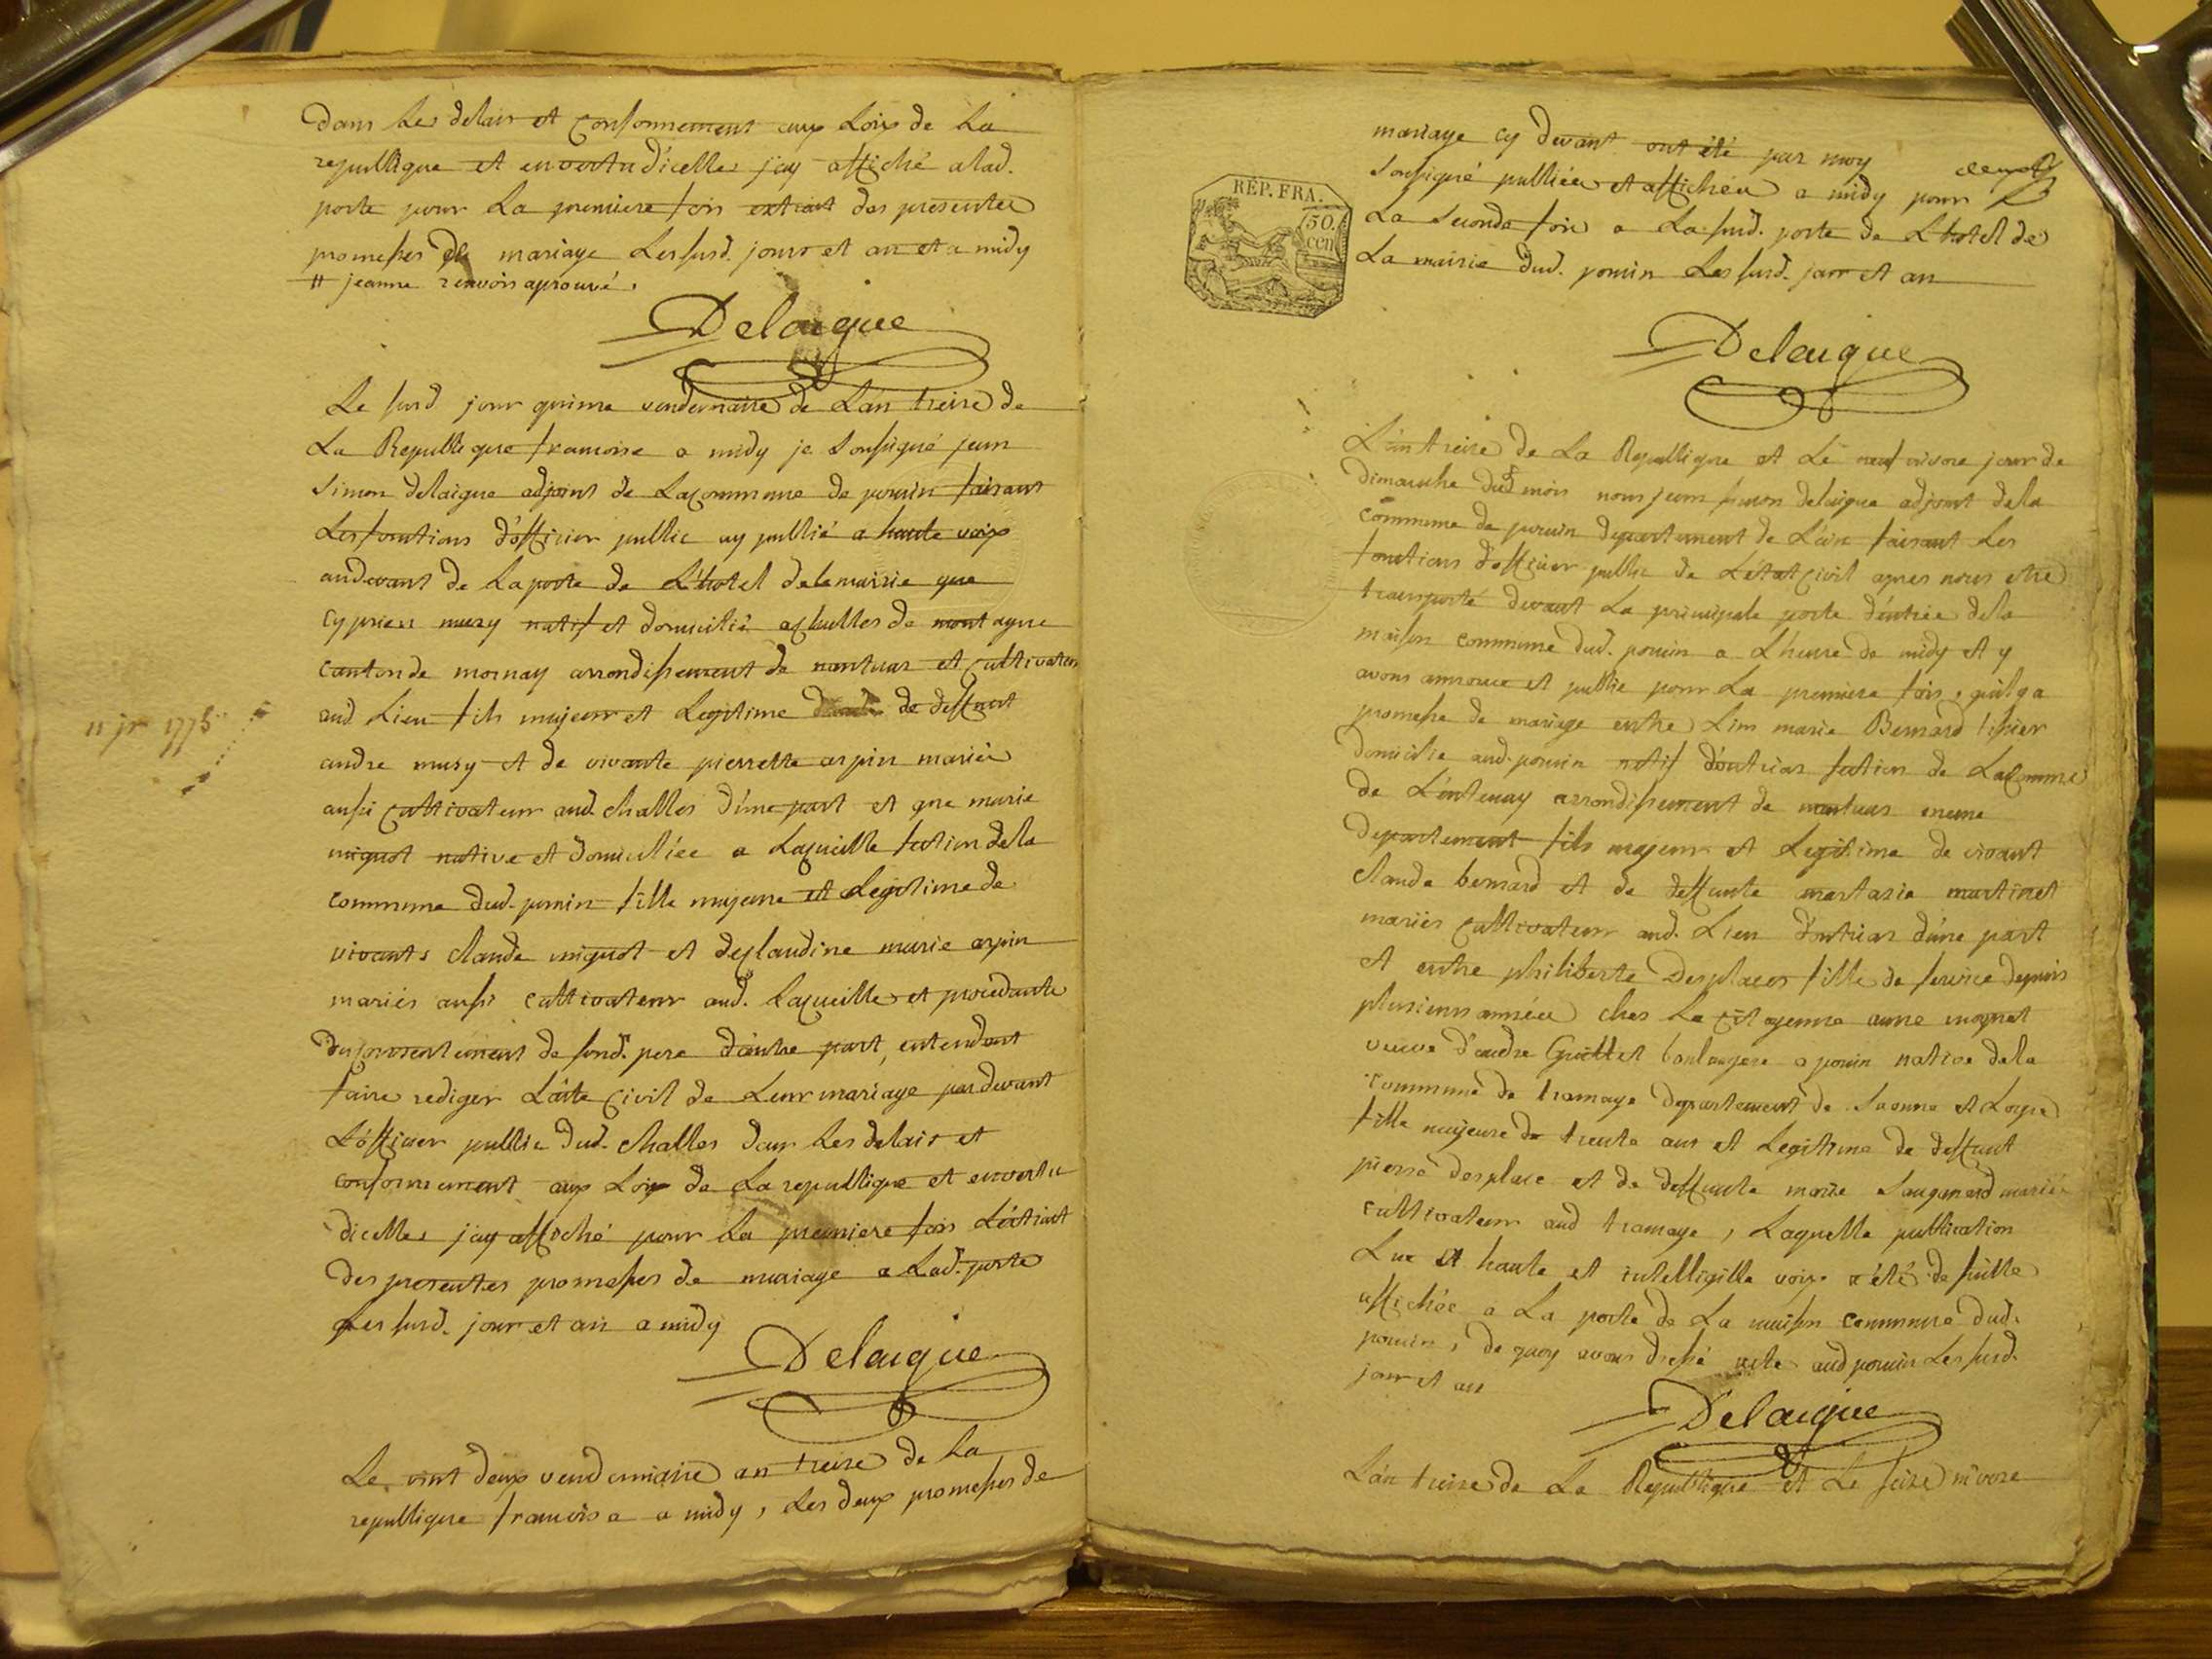 Dans Les delais et Conformement aux Loix de La
republique et en vertu d'icelles j'ay affiché a lad.
porte pour La premiere fois extrait des presentes
promesses de mariage Les susd. jour et an et a midy
# jeanne renvois aprouvé.
Delaigue
Le susd. jour quinze vendemiaire de L'an treize de
La Republique francoise a midy je soussigné jean
Simon delaigue adjoint de La Commune de poncin faisant
Les fonctions d'officier public ay publié a haute voix
au devant de La porte de L'hotel de la mairie que
Cyprien musy natif et domicilié a challes de montagne
Canton de mornay arrondissement de nantuas et Cultivateur
aud. Lieu fils majeur et Legitime de deffunt
11 jr 1775
andre musy et de vivante pierrette arpin mariés
aussi Cultivateur aud. challes d'une part et que marie
miguot native et domiciliée a La Cueille section de la
commune dud. poncin fille majeure et Legitime de
vivants claude miguot et de Claudine marie arpin
mariés aussi cultivateur aud. La Cueille et procedante
du Consentement de sond. pere d'autre part, entendent
faire rediger L'acte Civil de Leur mariage par devant
L'officier public dud. challes dans Les delais et
conformement aux Loix de La republique et en vertu
dicelles j'ay affiché pour La premiere fois L'extrait
des presentes promesses de mariage a Lad. porte
Les susd. jour et an a midy
Delaigue
Le vint deux vendemiaire an treize de La
republique francoise a midy, Les deux promesses de
mariage cy devant ont été par moy
soussigné publiées et affichées a midy pour
La seconde fois a La susd. porte de L'hotel de
La mairie dud. poncin Les susd. jour et an
RÉP. FRA.
50
cen
Delaigue
L'an treize de La Republique et Le neuf nivose jour de
dimanche dud. mois nous jean simon delaigue adjoint de la
Commune de poncin departement de L'ain faisant Les
fonctions d'officier public de L'état Civil apres nous etre
transporté devant La principale porte d'entrée de la
maison commune dud. poncin a L'heure de midy et y
avons annoncé et publié pour La premiere fois, qu'il y a
promesse de mariage entre Bernard
domicilié aud. poncin natif d'outriaz section de La Comme
de Lantenay arrondissement de nantuas meme
departement fils majeur et Legitime de vivant
claude bernard et de deffunte anastasie martinet
mariés Cultivateur aud. Lieu d'outriaz d'une part
et entre philiberte Desplaces fille de service depuis
plusieurs années ches La Citoyenne anne
veuve d'andre Guillet boulangere a poncin native de la
commune de tramaye departement de Saonne et Loire
fille majeure de trente ans et Legitime de deffunt
pierre desplace et de deffunte marie mariés
cultivateur aud tramaye, Laquelle publication
Lue et haute et intelligible voix a été de suitte
affichée a La porte de La maison commune dud.
poncin, de quoy avons dressé acte aud poncin Les susd.
jour et an
Delaigue
L'an treize de La Republique et Le seize nivose